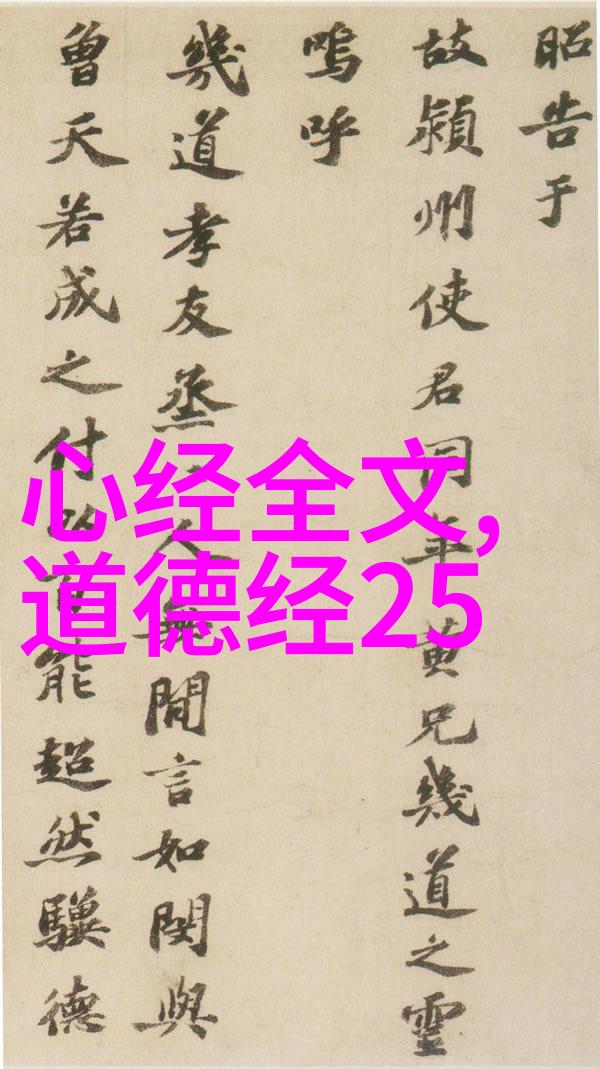 昭告于
故潁州使君同年黃兄幾道之靈
嗚呼
幾道孝友烝〻人無閒言如閔與
曾天若成之付以百能超然驥德
心经全文,
道德经25